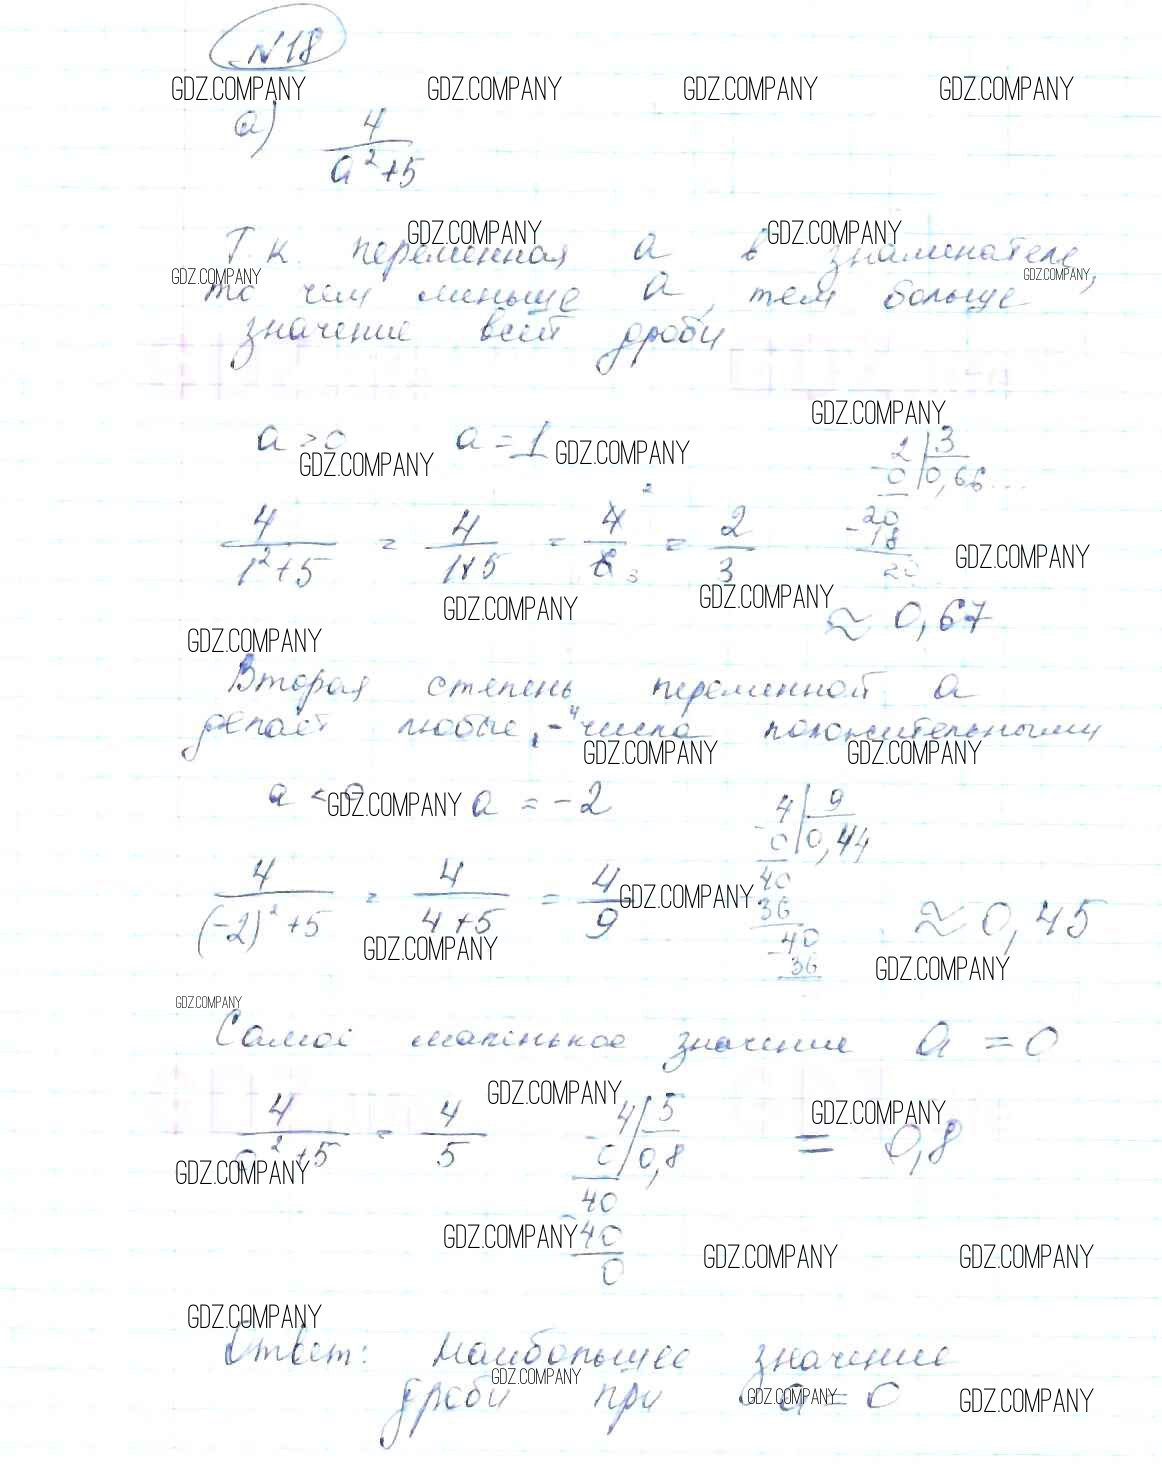 №18
GDZ.COMPANY GDZ.COMPANY GDZ.COMPANY GDZ.COMPANY
а) 4/(a²+5)
GDZ.COMPANY GDZ.COMPANY
Т.к. переменная а в знаменателе,
GDZ.COMPANY GDZ.COMPANY
то чем меньше а, тем больше
значение всей дроби
GDZ.COMPANY
a > 0 a = 1 2 | 3
GDZ.COMPANY GDZ.COMPANY
0 0,66...
4/(1²+5) = 4/(1+5) = 4/6 = 2/3 20
-18
20
GDZ.COMPANY
GDZ.COMPANY GDZ.COMPANY
≈ 0,67
GDZ.COMPANY
Вторая степень переменной а
делает любые "-" числа положительными
GDZ.COMPANY GDZ.COMPANY
a < 0 a = -2 4 | 9
GDZ.COMPANY
-0 0,44
4/((-2)²+5) = 4/(4+5) = 4/9 40
36
40
-36
≈ 0,45
GDZ.COMPANY
GDZ.COMPANY
GDZ.COMPANY
GDZ.COMPANY
Самое маленькое значение a = 0
GDZ.COMPANY GDZ.COMPANY
4/(0²+5) = 4/5 4 | 5
-0 0,8
40
-40
0
= 0,8
GDZ.COMPANY
GDZ.COMPANY GDZ.COMPANY GDZ.COMPANY
GDZ.COMPANY
Ответ: Наибольшее значение
GDZ.COMPANY
дроби при a = 0
GDZ.COMPANY GDZ.COMPANY